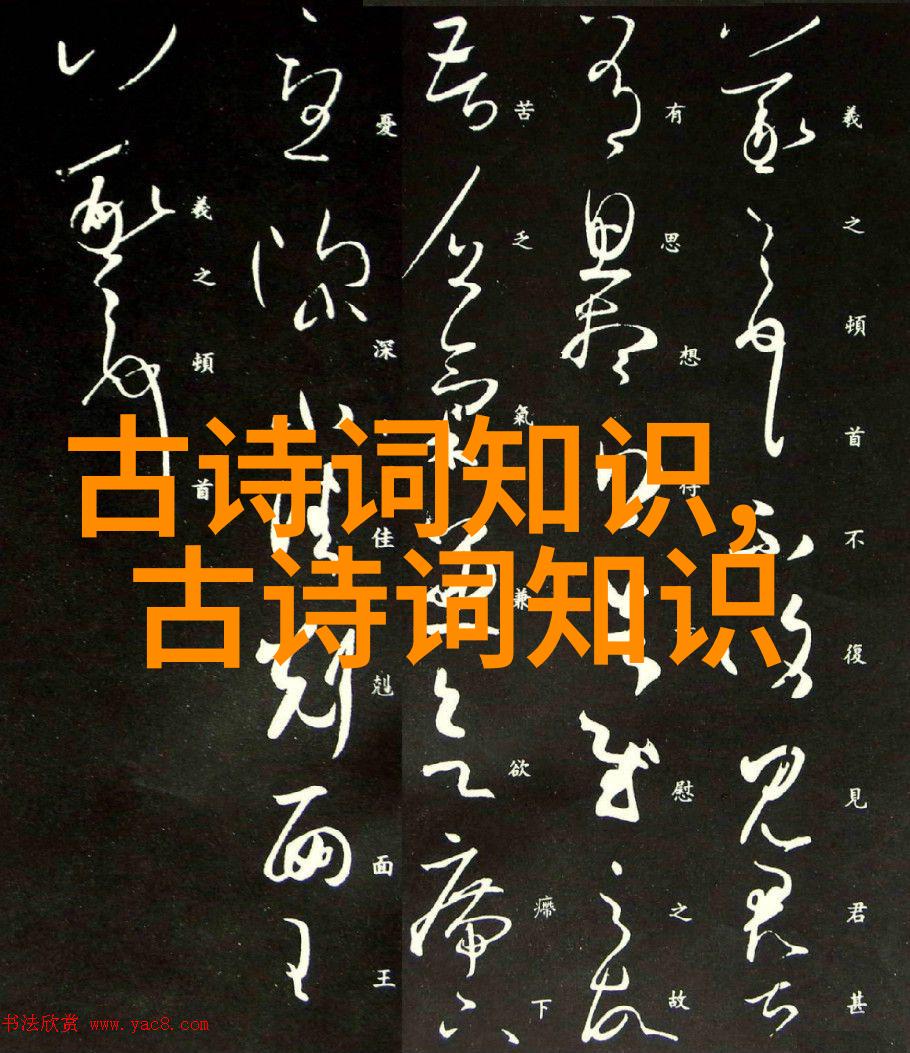 羲之頓首不復見君甚
有思想慰之故
苦乏氣兼欲下
憂深佳剋面王
羲之頓首
古诗词知识,
古诗词知识
书法欣赏 www.yac8.com